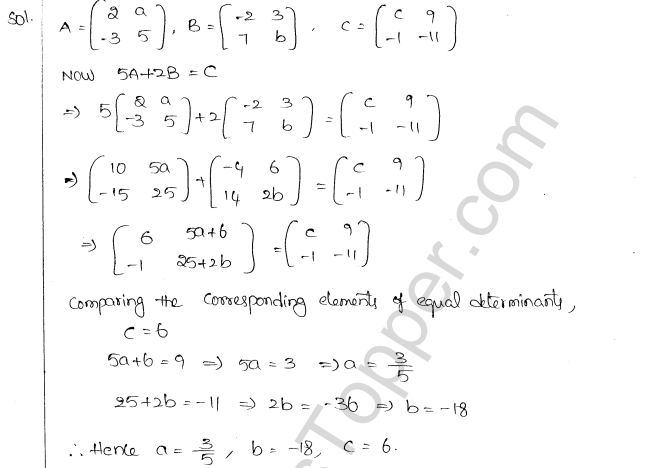 Sol. A = (2 a -3 5), B = (-2 3 7 b), C = (c 9 -1 -11)
Now 5A+2B = C
=> 5(2 a -3 5) + 2(-2 3 7 b) = (c 9 -1 -11)
=> (10 5a -15 25) + (-4 6 14 2b) = (c 9 -1 -11)
=> (6 5a+6 -1 25+2b) = (c 9 -1 -11)
Comparing the corresponding elements of equal determinants,
c = 6
5a+6 = 9 => 5a = 3 => a = 3/5
25+2b = -11 => 2b = -36 => b = -18
∴ Hence a = 3/5, b = -18, c = 6.
sTopper.com